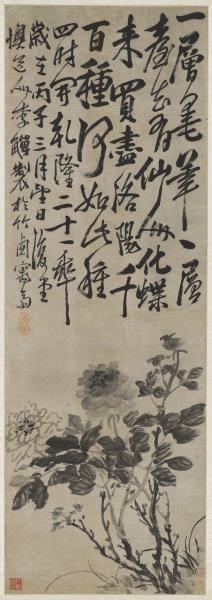 一層毫筆一層
有仙化蝶
来買盡洛陽千
百種何如此種
四時開乾隆二十一年
歲在丙子三月望日復堂
懊道人李鱓製於竹西寓